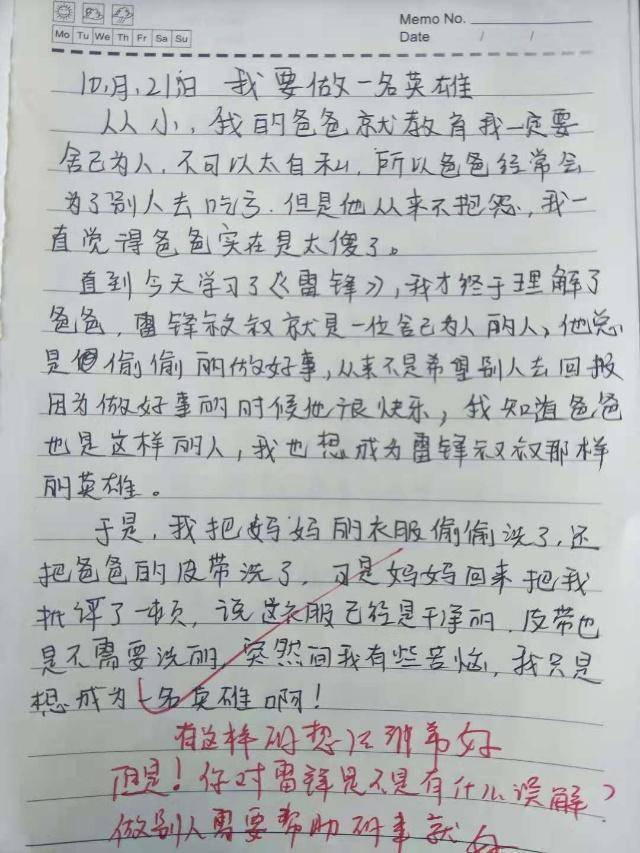 Memo No.
Mo Tu We Th Fr Sa Su
Date / /
10月,21日 我要做一名英雄
从人小,我的爸爸就教育我一定要
舍己为人,不可以太自私,所以爸爸经常会
为了别人去吃亏.但是他从来不抱怨,我一
直觉得爸爸实在是太傻了。
直到今天学习了《雷锋》,我才终于理解了
爸爸,雷锋叔叔就是一位舍己为人的人,他总
是偷偷的做好事,从来不是希望别人去回报
因为做好事的时候他很快乐,我知道爸爸
也是这样的人,我也想成为雷锋叔叔那样
的英雄。
于是,我把妈妈的衣服偷偷洗了,还
把爸爸的皮带洗了,可是妈妈回来把我
批评了一顿,说这衣服已经是干净的,皮带也
是不需要洗的,突然间我有些苦恼,我只是
想成为一名英雄啊!
有这样的想法非常好
但是!你对雷锋是不是有什么误解?
做别人需要帮助的事就好